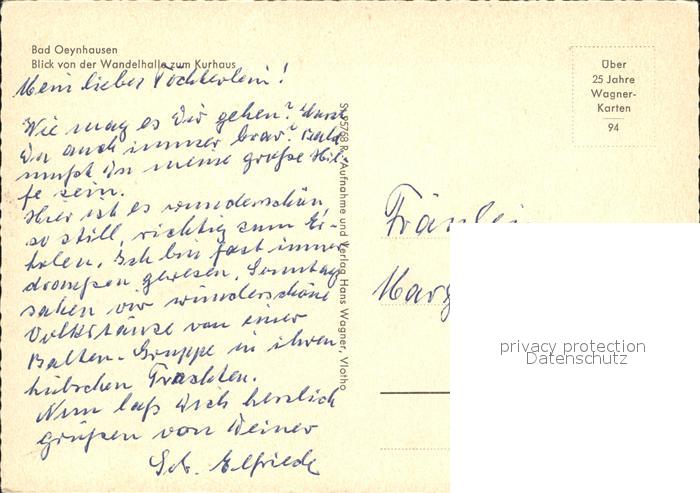 Bad Oeynhausen
Blick von der Wandelhalle zum Kurhaus
Mein liebes Töchterlein!
Wie mag es Dir gehen? Warst
Du auch immer brav? Bald
mußt Du meine große Hil-
fe sein.
Hier ist es wunderschön
so still, richtig zum Er-
holen. Ich bin fast immer
draußen gewesen. Sonntag
sahen wir wunderschöne
Volkstänze von einer
Balten-Gruppe in ihren
hübschen Trachten.
Nun laß Dich herzlich
grüßen von Deiner
Elfriede
Aufnahme und Verlag Hans Wagner, Vlotho
Über
25 Jahre
Wagner-
Karten
94
Fräulei
Marg
privacy protection
Datenschutz